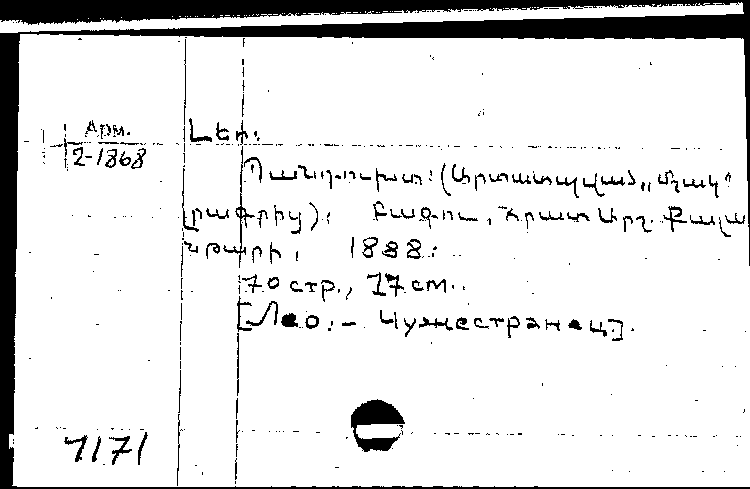 Арм.
2-1868
Լեո:
Պանդուխտ: (Արտատպված „Մշակ"
լրագրից): Բագու, Հրատ. Արշ. Քալա
նթարի, 1888:
70 стр., 17 см.
[Лео.- Чужестранец].
7171